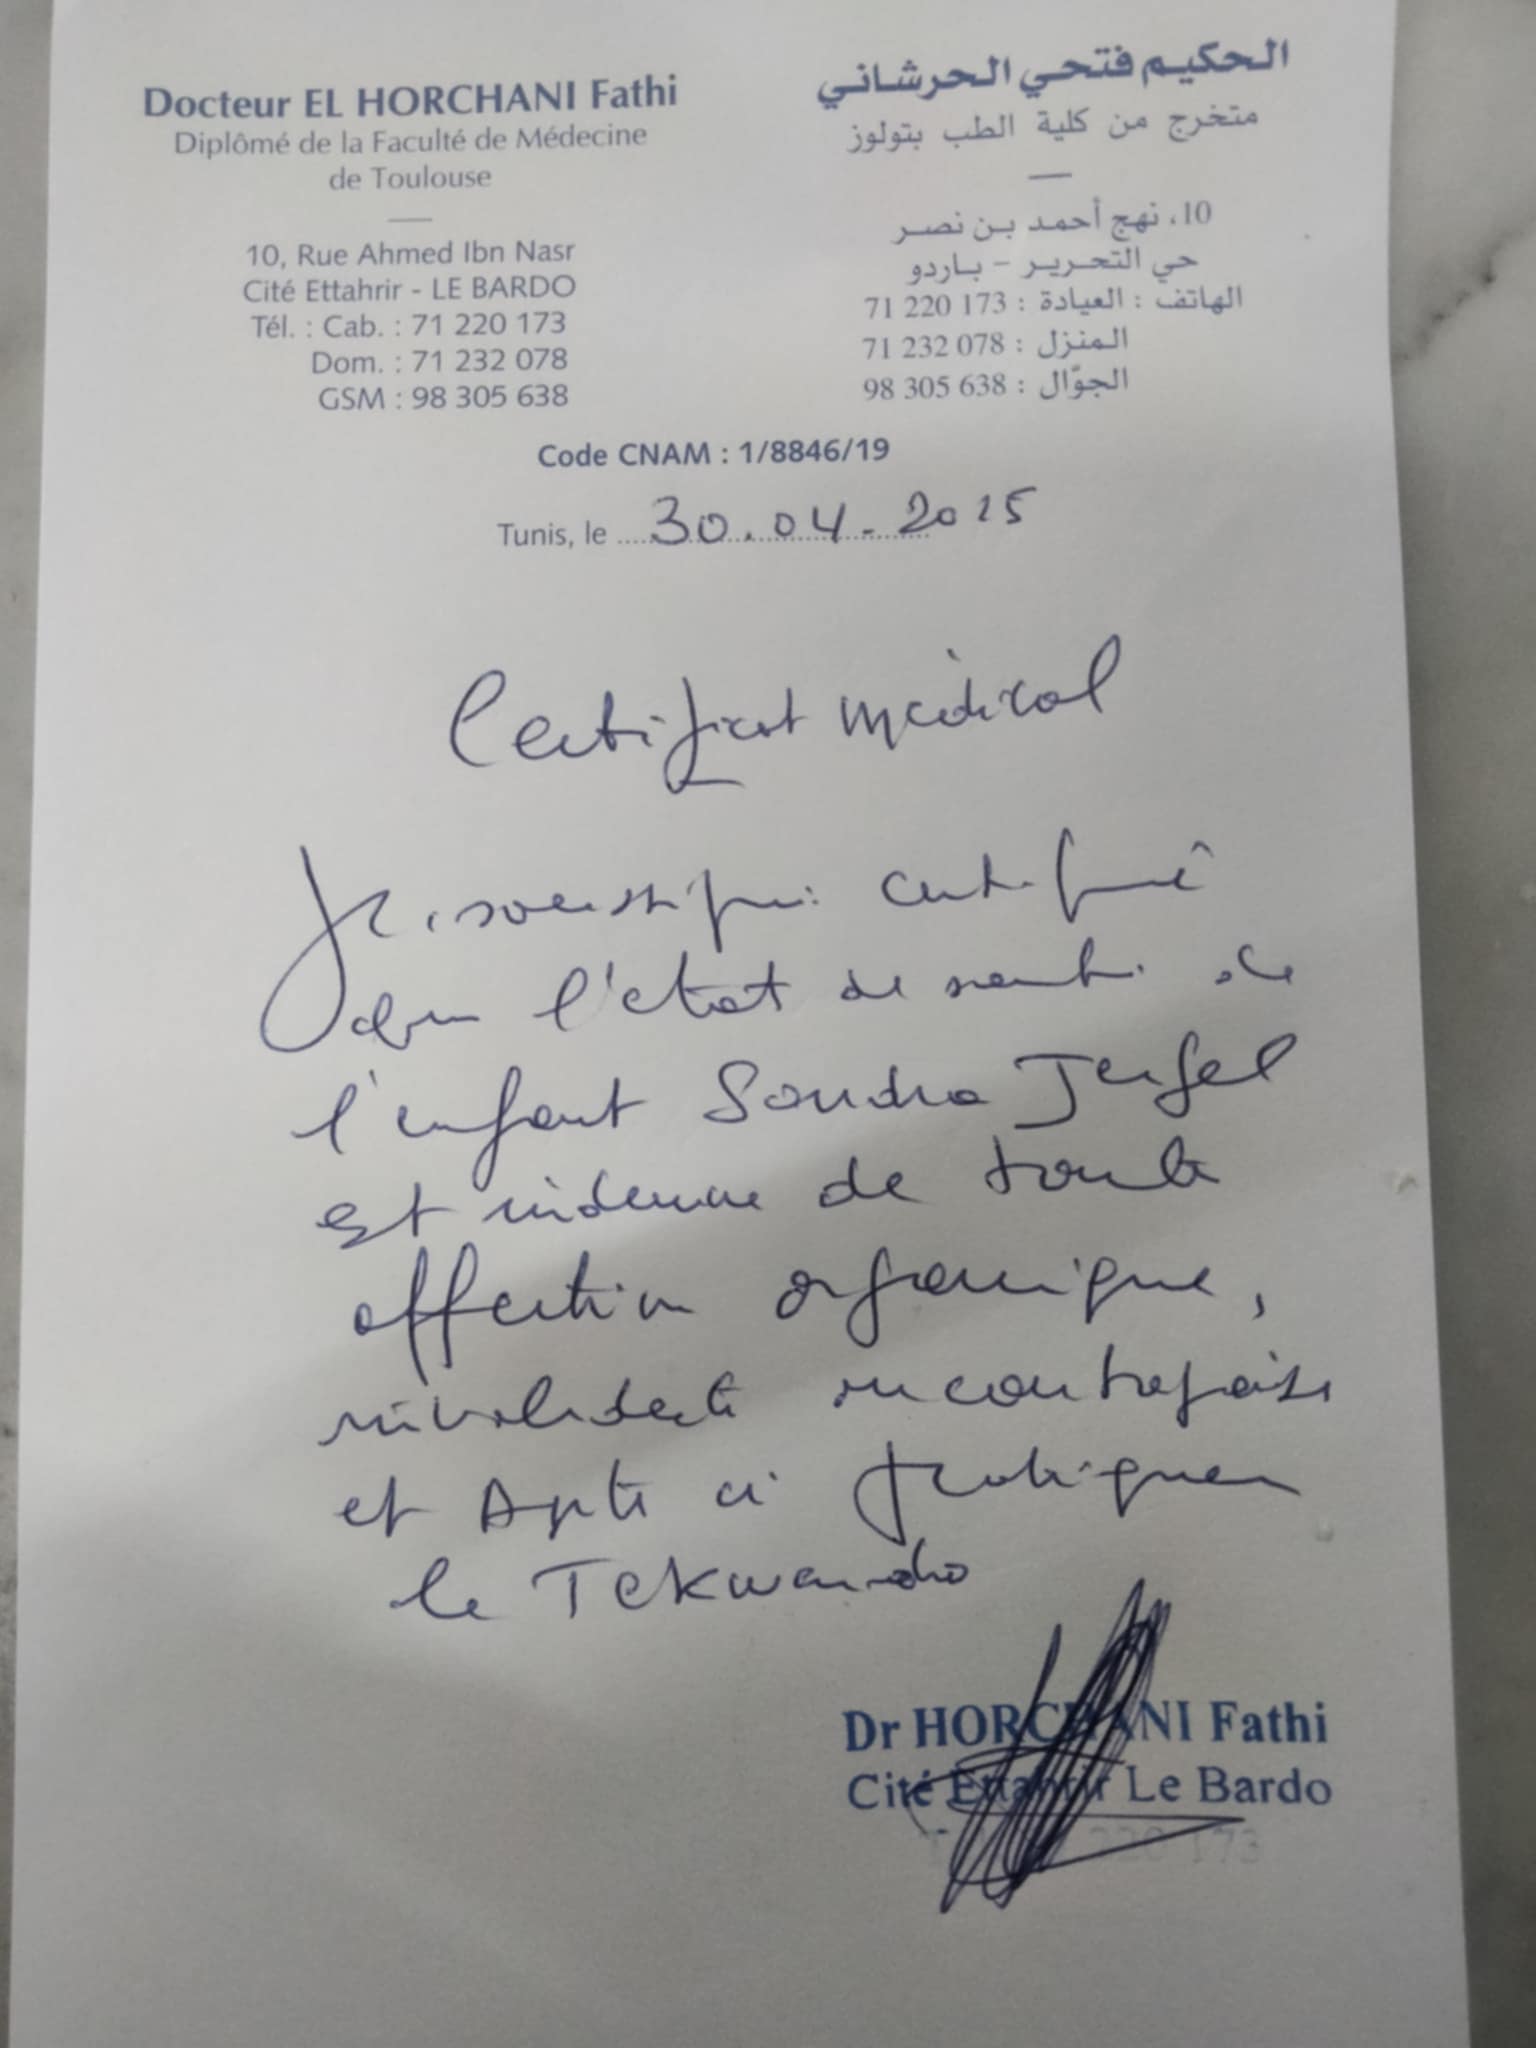 Docteur EL HORCHANI Fathi
Diplômé de la Faculté de Médecine
de Toulouse
10, Rue Ahmed Ibn Nasr
Cité Ettahrir - LE BARDO
Tél. : Cab. : 71 220 173
Dom. : 71 232 078
GSM : 98 305 638
الحكيم فتحي الحرشاني
متخرج من كلية الطب بتولوز
10، نهج أحمد بن نصر
حي التحرير - باردو
الهاتف : العيادة : 173 220 71
المنزل : 078 232 71
الجوّال : 638 305 98
Code CNAM : 1/8846/19
Tunis, le 30.04.2025
Certificat médical
Je soussigné certifie
que l'état de santé de
l'enfant Sondra
est indemne de toute
affection organique,
invalidante ou contagieuse
et Apte à pratiquer
le Tekwando
Dr HORCHANI Fathi
Cité Ettahrir Le Bardo
220 173